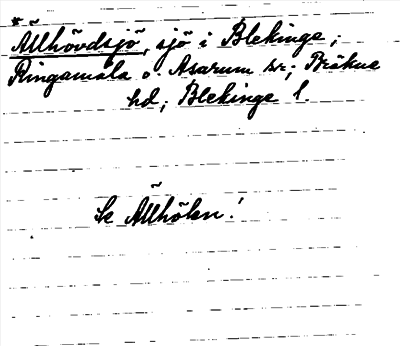 *Ällhövdsjö, sjö i Blekinge;
Ringamåla o. Asarum sr; Bräkne
hd; Blekinge l.
Se Ällhölen!